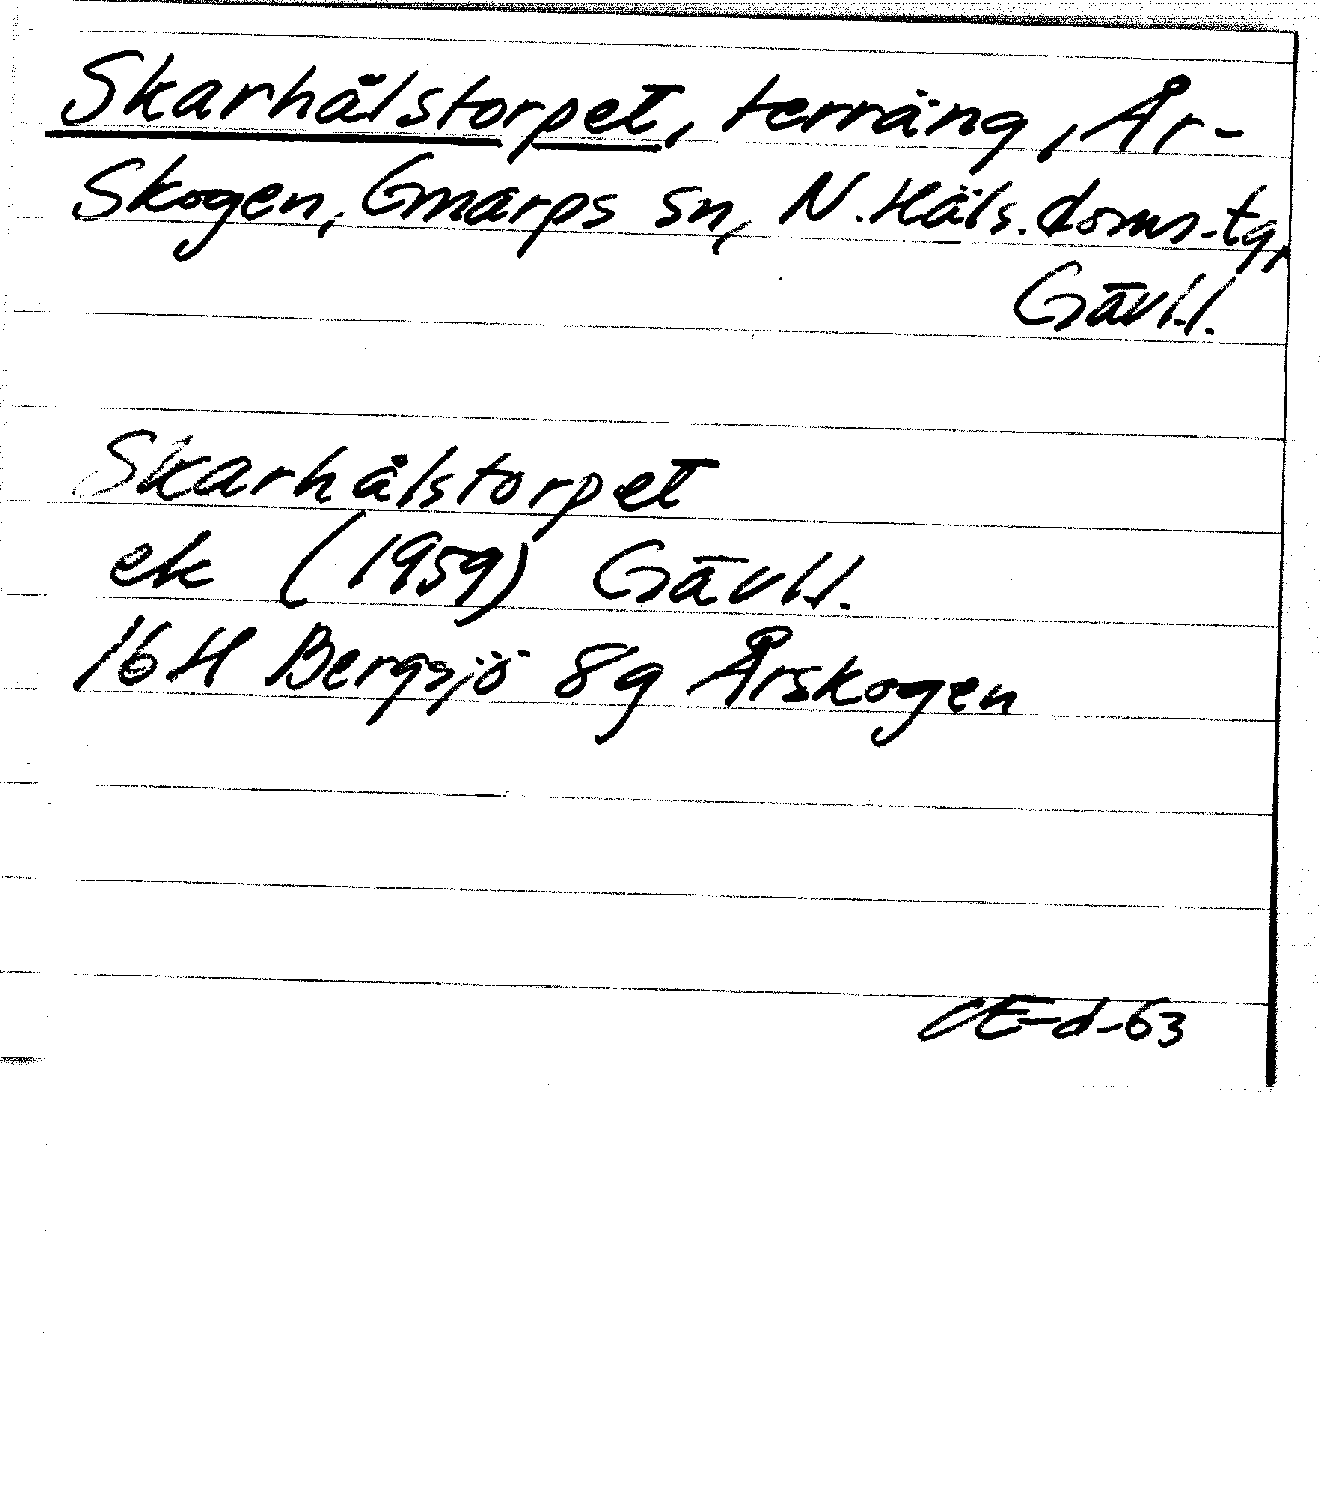 Skarhålstorpet, terräng, År-
skogen, Gnarps sn, N.Häls.doms.tg,
Gävl.l.
Skarhålstorpet
ek (1959) Gävl.l.
16H Bergsjö 8g Årskogen
OE-d-63